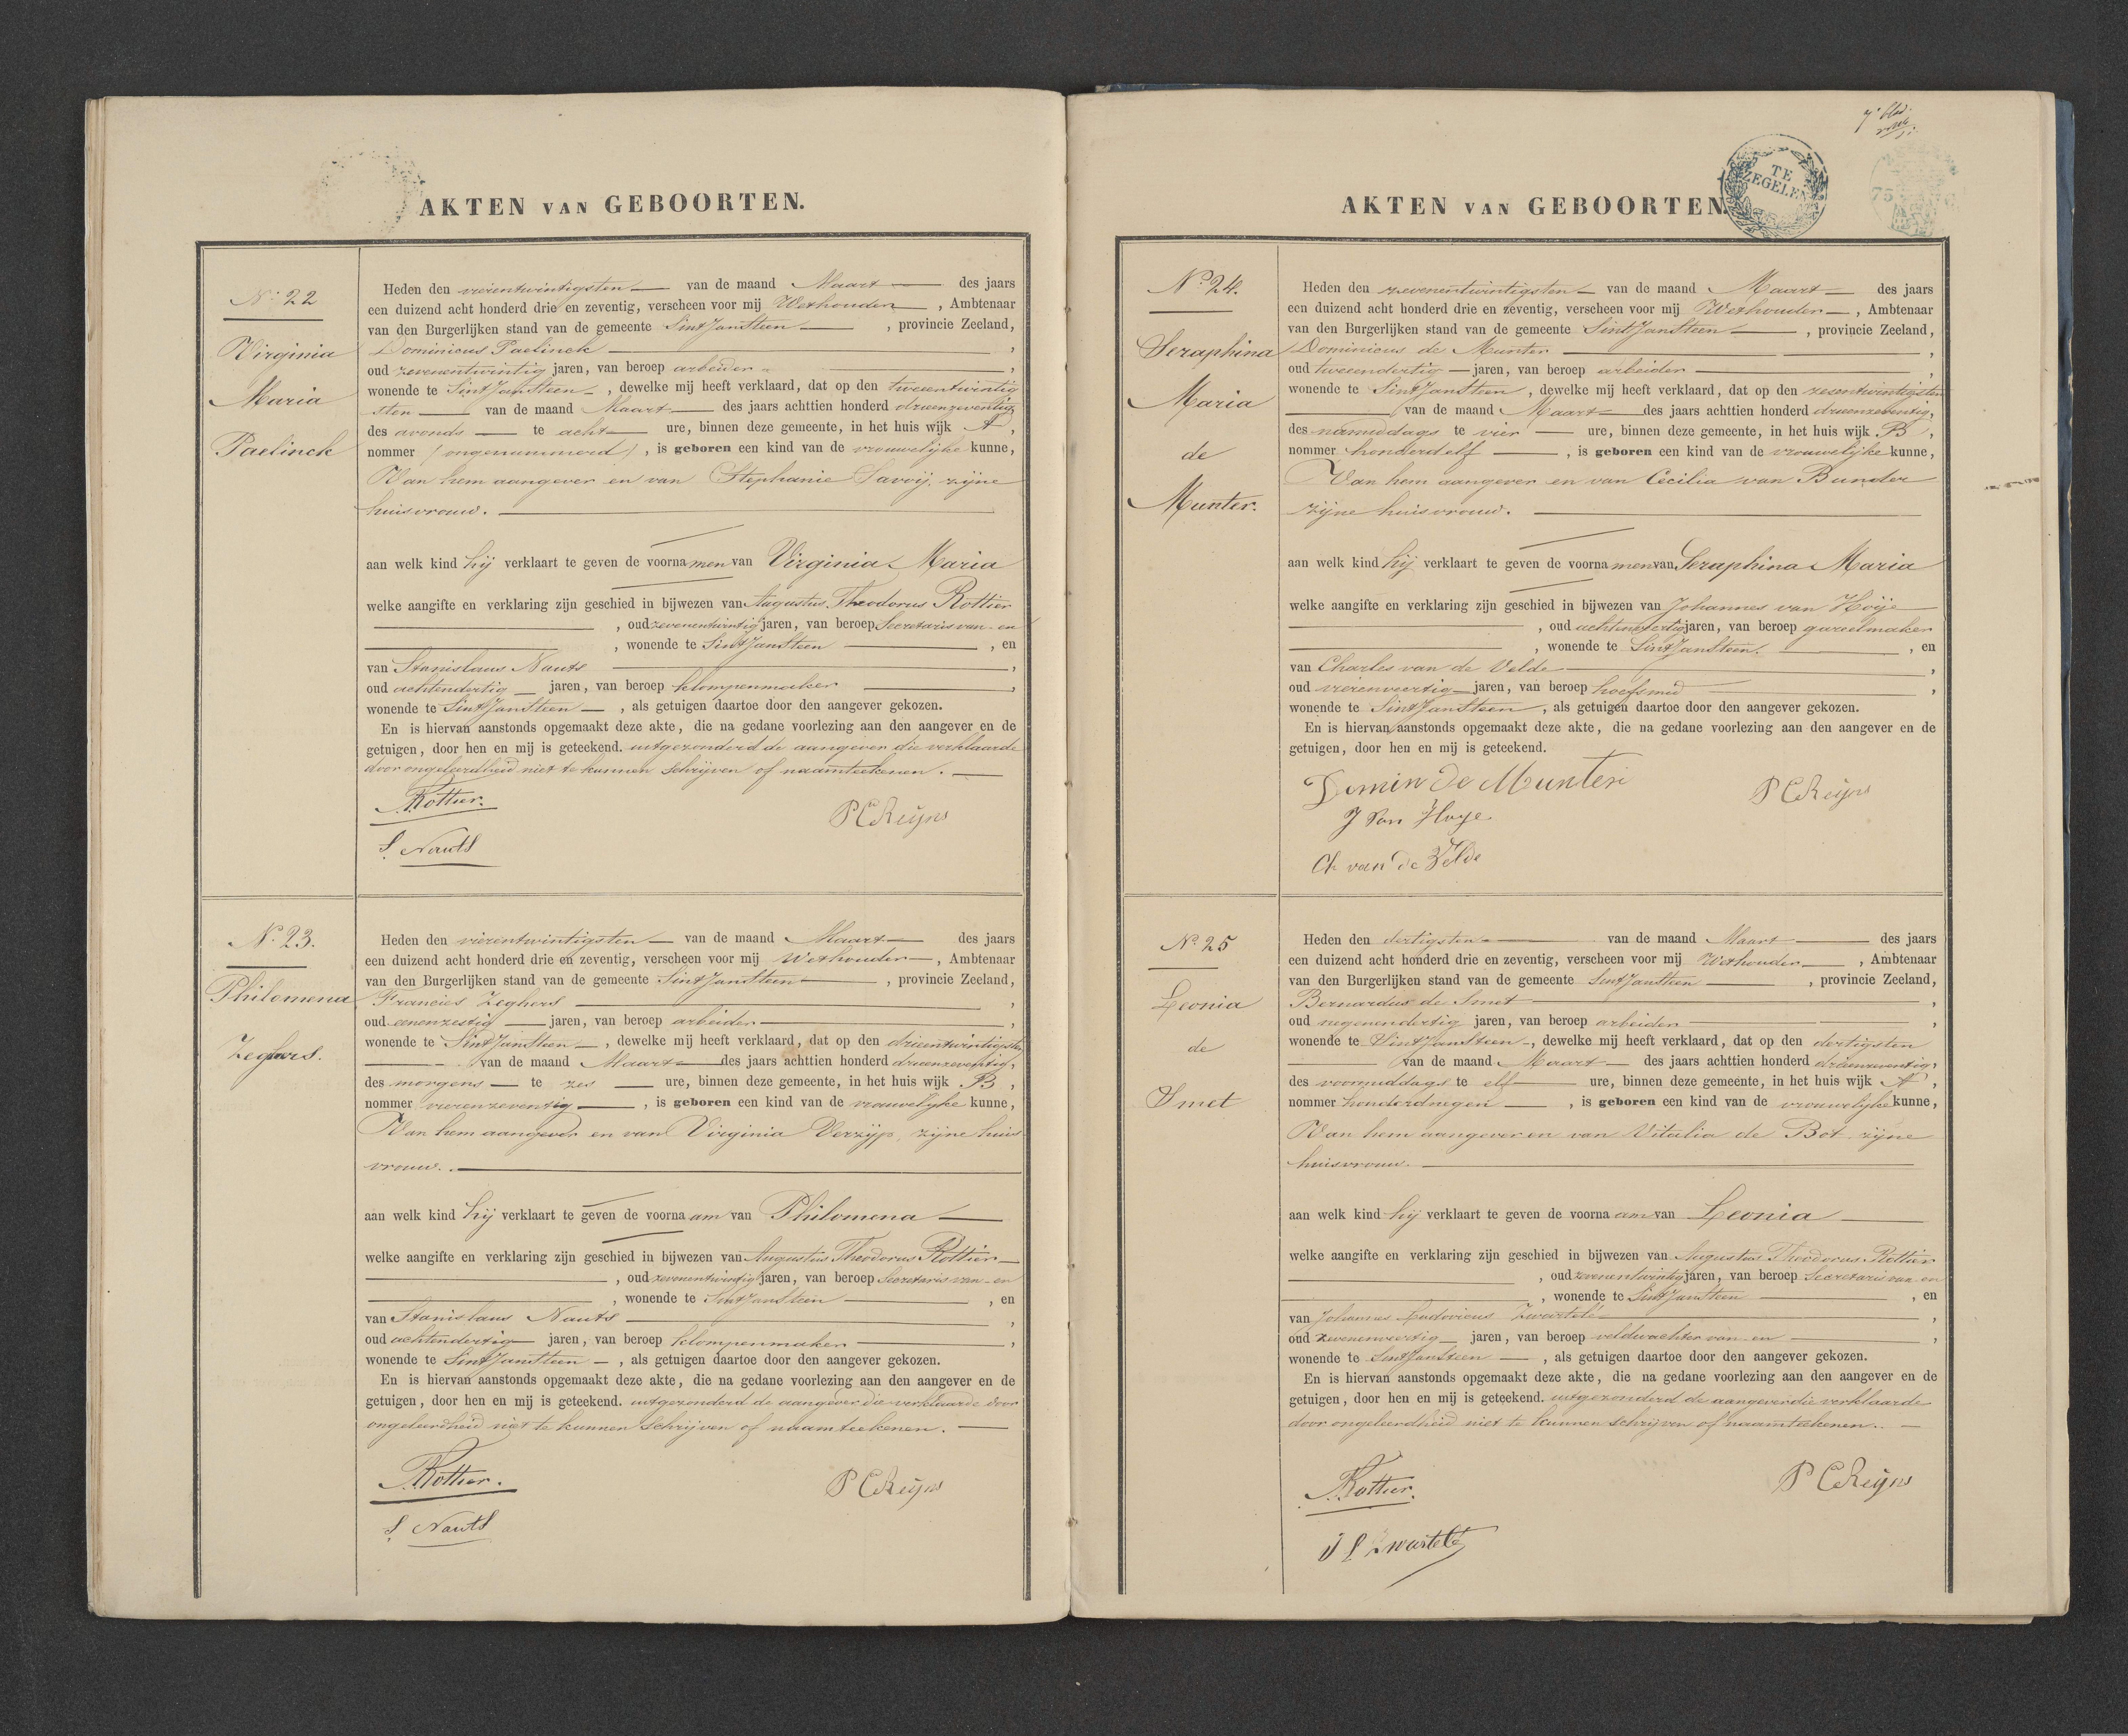 AKTEN VAN GEBOORTEN.
No. 22
Virginia
Maria
Paelinck
Heden den vierentwintigsten van de maand Maart des jaars
een duizend acht honderd drie en zeventig, verscheen voor mij Wethouder, Ambtenaar
van den Burgerlijken stand van de gemeente Sint Jansteen, provincie Zeeland,
Dominicus Paelinck,
oud zevenentwintig jaren, van beroep arbeider,
wonende te Sint Jansteen, dewelke mij heeft verklaard, dat op den tweeentwintig
sten van de maand Maart des jaars achttien honderd drieenzeventig,
des avonds te acht ure, binnen deze gemeente, in het huis wijk A,
nommer (ongenummerd), is geboren een kind van de vrouwelijke kunne,
Van hem aangever en van Stephanie Savoij, zijne
huisvrouw.
aan welk kind hij verklaart te geven de voornamen van Virginia Maria
welke aangifte en verklaring zijn geschied in bijwezen van Augustus Theodorus Rottier
, oud zevenentwintig jaren, van beroep Secretaris van en
, wonende te Sint Jansteen, en
van Stanislaus Nauts,
oud achtendertig jaren, van beroep klompenmaker,
wonende te Sint Jansteen, als getuigen daartoe door den aangever gekozen.
En is hiervan aanstonds opgemaakt deze akte, die na gedane voorlezing aan den aangever en de
getuigen, door hen en mij is geteekend. uitgezonderd de aangever die verklaarde
door ongeleerdheid niet te kunnen schrijven of naamteekenen.
Rottier.
P C Reijns
S. Nauts
No. 23.
Philomena
Zeghers.
Heden den vierentwintigsten van de maand Maart des jaars
een duizend acht honderd drie en zeventig, verscheen voor mij Wethouder, Ambtenaar
van den Burgerlijken stand van de gemeente Sint Jansteen, provincie Zeeland,
Francies Zeghers,
oud eenenzestig jaren, van beroep arbeider,
wonende te Sint Jansteen, dewelke mij heeft verklaard, dat op den drieentwintigsten
van de maand Maart des jaars achttien honderd drieenzeventig,
des morgens te zes ure, binnen deze gemeente, in het huis wijk B,
nommer vierenzeventig, is geboren een kind van de vrouwelijke kunne,
Van hem aangever en van Virginia Verzijp, zijne huis
vrouw.
aan welk kind hij verklaart te geven de voornaam van Philomena
welke aangifte en verklaring zijn geschied in bijwezen van Augustus Theodorus Rottier
, oud zevenentwintig jaren, van beroep Secretaris van en
, wonende te Sint Jansteen, en
van Stanislaus Nauts,
oud achtendertig jaren, van beroep klompenmaker,
wonende te Sint Jansteen, als getuigen daartoe door den aangever gekozen.
En is hiervan aanstonds opgemaakt deze akte, die na gedane voorlezing aan den aangever en de
getuigen, door hen en mij is geteekend. uitgezonderd de aangever die verklaarde door
ongeleerdheid niet te kunnen schrijven of naamteekenen.
Rottier.
P C Reijns
S. Nauts
TE
ZEGELEN
75
AKTEN VAN GEBOORTEN
No. 24.
Seraphina
Maria
de
Munter.
Heden den zevenentwintigsten van de maand Maart des jaars
een duizend acht honderd drie en zeventig, verscheen voor mij Wethouder, Ambtenaar
van den Burgerlijken stand van de gemeente Sint Jansteen, provincie Zeeland,
Dominicus de Munter,
oud tweeendertig jaren, van beroep arbeider,
wonende te Sint Jansteen, dewelke mij heeft verklaard, dat op den zesentwintigsten
van de maand Maart des jaars achttien honderd drieenzeventig,
des namiddags te vier ure, binnen deze gemeente, in het huis wijk B,
nommer honderdelf, is geboren een kind van de vrouwelijke kunne,
Van hem aangever en van Cecilia van Bunder
zijne huisvrouw.
aan welk kind hij verklaart te geven de voornamen van Seraphina Maria
welke aangifte en verklaring zijn geschied in bijwezen van Johannes van Hoije
, oud achtenveertig jaren, van beroep gareelmaker
, wonende te Sint Jansteen., en
van Charles van de Velde,
oud vierenveertig jaren, van beroep hoefsmid,
wonende te Sint Jansteen, als getuigen daartoe door den aangever gekozen.
En is hiervan aanstonds opgemaakt deze akte, die na gedane voorlezing aan den aangever en de
getuigen, door hen en mij is geteekend.
Domin De Munter
P C Reijns
J Van Hoye
Ch van de Velde
No. 25
Leonia
de
Smet
Heden den dertigsten van de maand Maart des jaars
een duizend acht honderd drie en zeventig, verscheen voor mij Wethouder, Ambtenaar
van den Burgerlijken stand van de gemeente Sint Jansteen, provincie Zeeland,
Bernardus de Smet,
oud negenendertig jaren, van beroep arbeider,
wonende te Sint Jansteen, dewelke mij heeft verklaard, dat op den dertigsten
van de maand Maart des jaars achttien honderd drieenzeventig,
des voormiddags te elf ure, binnen deze gemeente, in het huis wijk A,
nommer honderdnegen, is geboren een kind van de vrouwelijke kunne,
Van hem aangever en van Vitalia de Bot zijne
huisvrouw.
aan welk kind hij verklaart te geven de voornaam van Leonia
welke aangifte en verklaring zijn geschied in bijwezen van Augustus Theodorus Rottier
, oud zevenentwintig jaren, van beroep Secretaris van en
, wonende te Sint Jansteen, en
van Johannes Ludovicus Zwartelé,
oud zevenenveertig jaren, van beroep veldwachter van en,
wonende te Sint Jansteen, als getuigen daartoe door den aangever gekozen.
En is hiervan aanstonds opgemaakt deze akte, die na gedane voorlezing aan den aangever en de
getuigen, door hen en mij is geteekend. uitgezonderd de aangever die verklaarde
door ongeleerdheid niet te kunnen schrijven of naamteekenen.
Rottier.
P C Reijns
J L Zwartelé